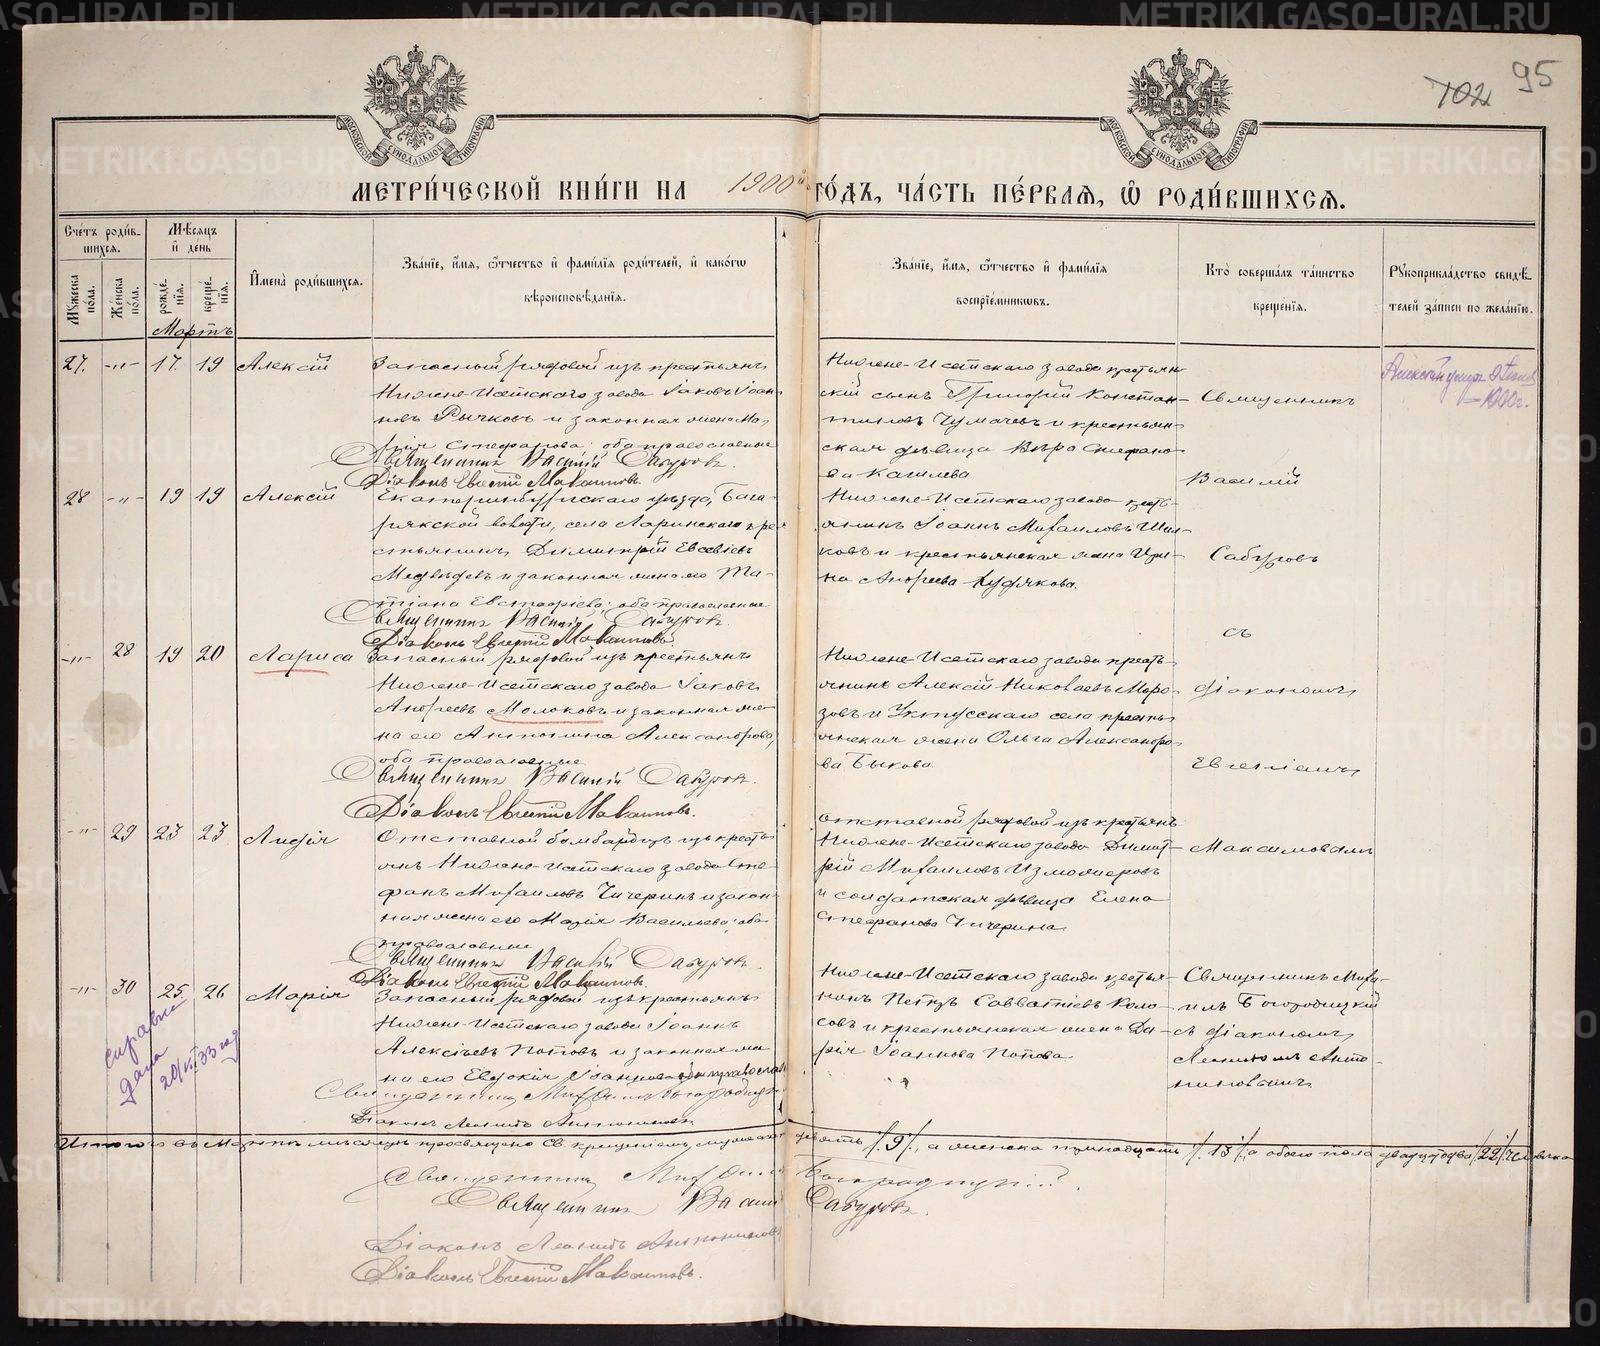 METRIKI.GASO-URAL.RU
702 95
МОСКОВСКОЙ СѴНОДАЛЬНОЙ ТИПОГРАФІИ
МОСКОВСКОЙ СѴНОДАЛЬНОЙ ТИПОГРАФІИ
МЕТРИ́ЧЕСКОЙ КНИ́ГИ НА 1900й ГО́ДЪ, ЧА́СТЬ ПЕ́РВАЯ, Ѽ РОДИ́ВШИХСЯ.
Сче́тъ роди́вшихся.
Мѣ́сяцъ и҆ де́нь
Мꙋ́жеска по́ла.
Же́нска по́ла.
рожде́нїя.
креще́нїя.
И҆мена̀ роди́вшихся.
Зва́нїе, и҆́мя, ѻ҆́тчество и҆ фами́лїя роди́телей, и҆ како́гѡ вѣроисповѣ́данїя.
Зва́нїе, и҆́мя, ѻ҆́тчество и҆ фами́лїя воспрїе́мникѡвъ.
Кто̀ соверша́лъ та́инство креще́нїя.
Рꙋкоприкла́дство свидѣ́телей за́писи по жела́нїю.
Мартъ
27. -"- 17. 19 Алексій
Запасный рядовой изъ крестьянъ
Нижне-Исетскаго завода Іаковъ Іоан-
новъ Рычковъ и законная жена Ма-
рія Стефанова; оба православные
Священникъ Василій Сабуровъ.
Діаконъ Евгеній Максимовъ.
Нижне-Исетскаго завода крестьян-
скій сынъ Григорій Констан-
тиновъ Чумачевъ и крестьян-
ская дѣвица Вѣра Стефано-
ва
Священникъ
Василій
Сабуровъ
съ
діакономъ
Евгеніемъ
Максимовымъ
1900г.
28 -"- 19 19 Алексій
Екатеринбургскаго уѣзда, Бага-
рякской волости, села Ларинскаго кре-
стьянинъ Димитрій Евсевіевъ
Медвѣдевъ и законная жена его Та-
тіана Евстафіева; оба православные
Священникъ Василій Сабуровъ.
Діаконъ Евгеній Максимовъ
Нижне-Исетскаго завода кресть-
янинъ Іоаннъ Михаиловъ
и крестьянская жена Ири-
на Андреева Худякова.
-"- 28 19 20 Лариса
Запасный рядовой изъ крестьянъ
Нижне-Исетскаго завода Іаковъ
Андреевъ Молоковъ и законная же-
на его Антонина Александрова,
оба православные
Священникъ Василій Сабуровъ.
Діаконъ Евгеній Максимовъ.
Нижне-Исетскаго завода кресть-
янинъ Алексій Николаевъ Моро-
зовъ и Уктусскаго села кресть-
янская жена Ольга Александро-
ва Быкова.
-"- 29 23 23 Лидія
Отставной бомбардиръ изъ кресть-
янъ Нижне-Исетскаго завода Сте-
фанъ Михаиловъ Чичеринъ и закон-
ная жена его Марія Васильева; оба
православные
Священникъ Василій Сабуровъ.
Діаконъ Евгеній Максимовъ.
Отставной рядовой изъ крестьянъ
Нижне-Исетскаго завода Димит-
рій Михаиловъ Измоденовъ
и солдатская дѣвица Елена
Стефанова Чичерина
-"- 30 25. 26 Марія
Запасный рядовой изъ крестьянъ
Нижне-Исетскаго завода Іоаннъ
Алексіевъ Поповъ и законная же-
на его Евдокія Іоаннова оба православ
Священникъ Михаилъ Богородицкій
Діаконъ Леонидъ Антониновъ
Нижне-Исетскаго завода кресть-
янинъ Петръ Савватіевъ Коло-
совъ и крестьянская жена Да-
рія Іоаннова Попова
Священникъ Миха-
илъ Богородицкій
съ діакономъ
Леонидомъ Анто-
ниновымъ
справка
дана
20/VI 33 год
Итого въ Мартѣ мѣсяцѣ просвящено Св. крещеніемъ мужеска девять /9/, а женска тринадцать /13/, а обоего пола двадцать два /22/ человѣка
Священникъ Михаилъ Богородицкій.
Священникъ Василій Сабуровъ.
Діаконъ Леонидъ Антониновъ
Діаконъ Евгеній Максимовъ.